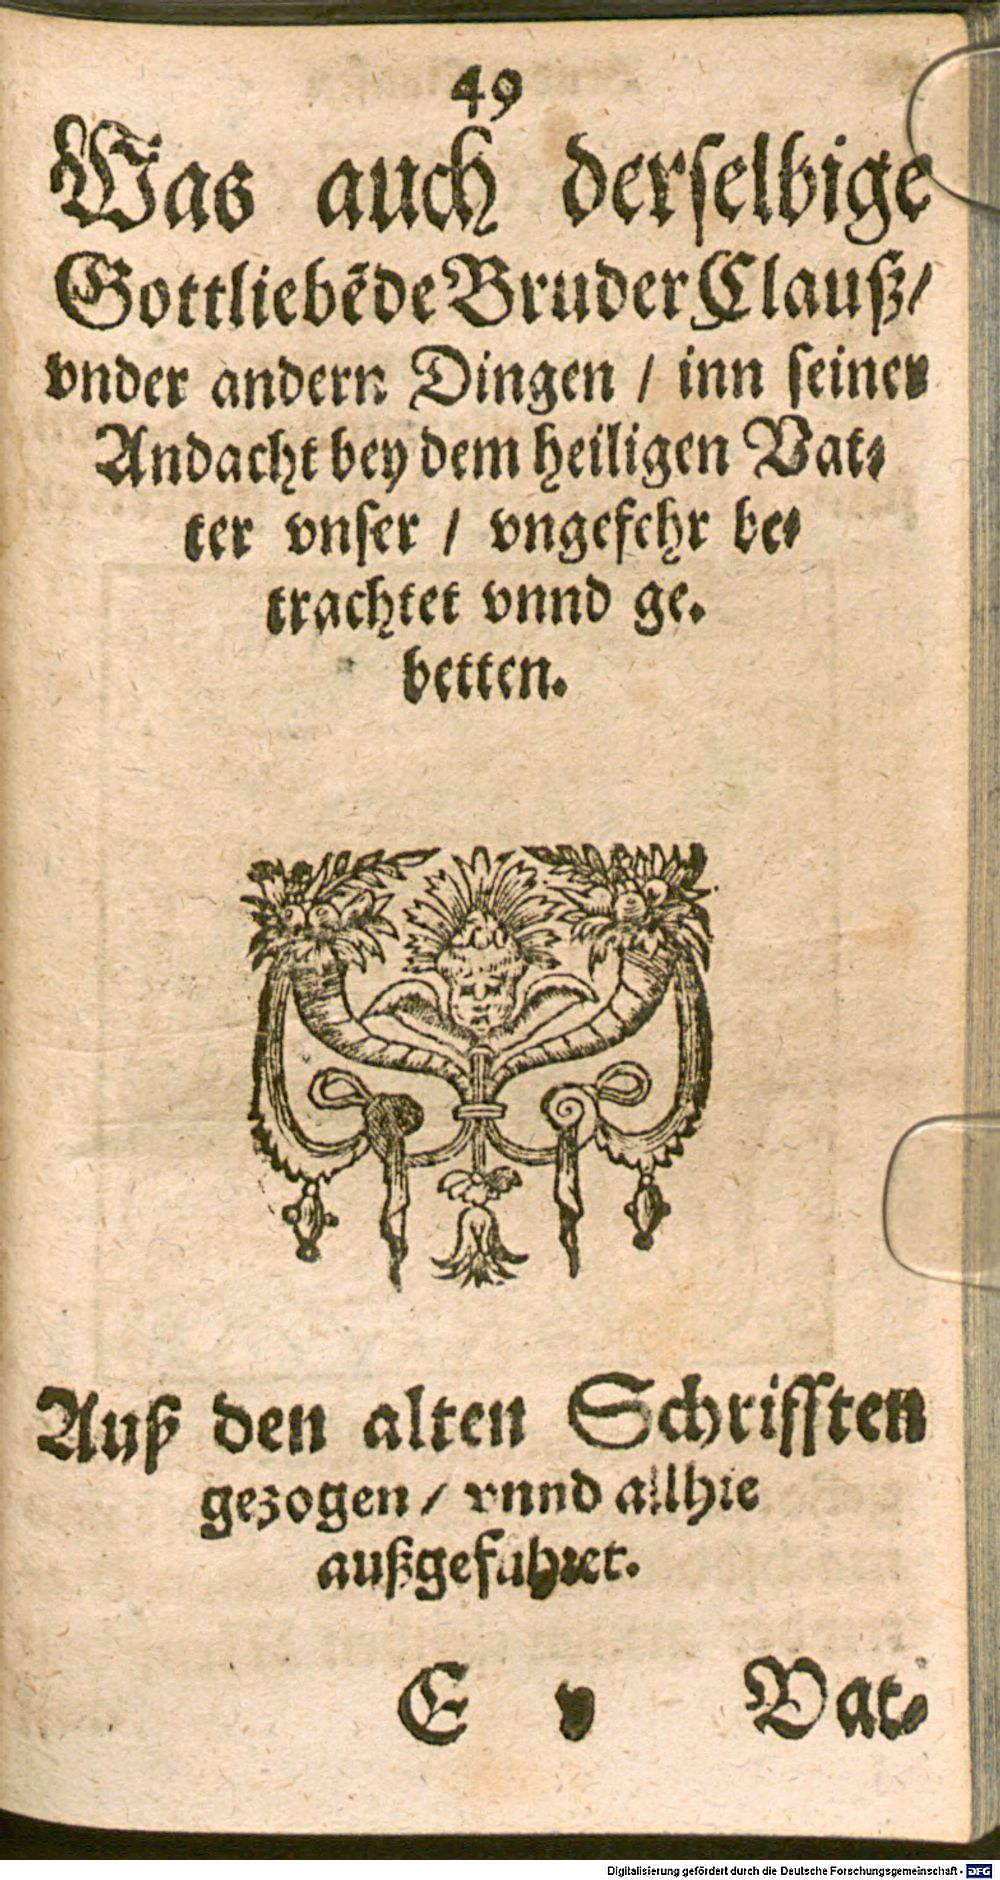 49
Was auch derselbige
Gottliebēde Bruder Clauß/
vnder andern Dingen / inn seiner
Andacht bey dem heiligen Vat⸗
ter vnser / vngefehr be⸗
trachtet vnnd ge⸗
betten.
Auß den alten Schrifften
gezogen / vnnd allhie
außgefuhret.
E v Vat⸗
Digitalisierung gefördert durch die Deutsche Forschungsgemeinschaft - DFG